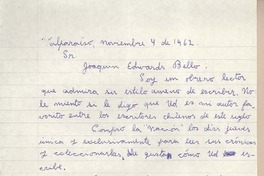 Valparaíso, noviembre 4 de 1962.
Sr
Joaquin Edwards Bello.
Soy un obrero lector
que admira su estilo ameno de escribir. No
le miento si le digo que Ud es mi autor fa-
vorito entre los escritores chilenos de este siglo
Compro la Nación los días jueves
única y exclusivamente para leer sus crónicas
y coleccionarlas, me gusta cómo Ud es-
cribe.